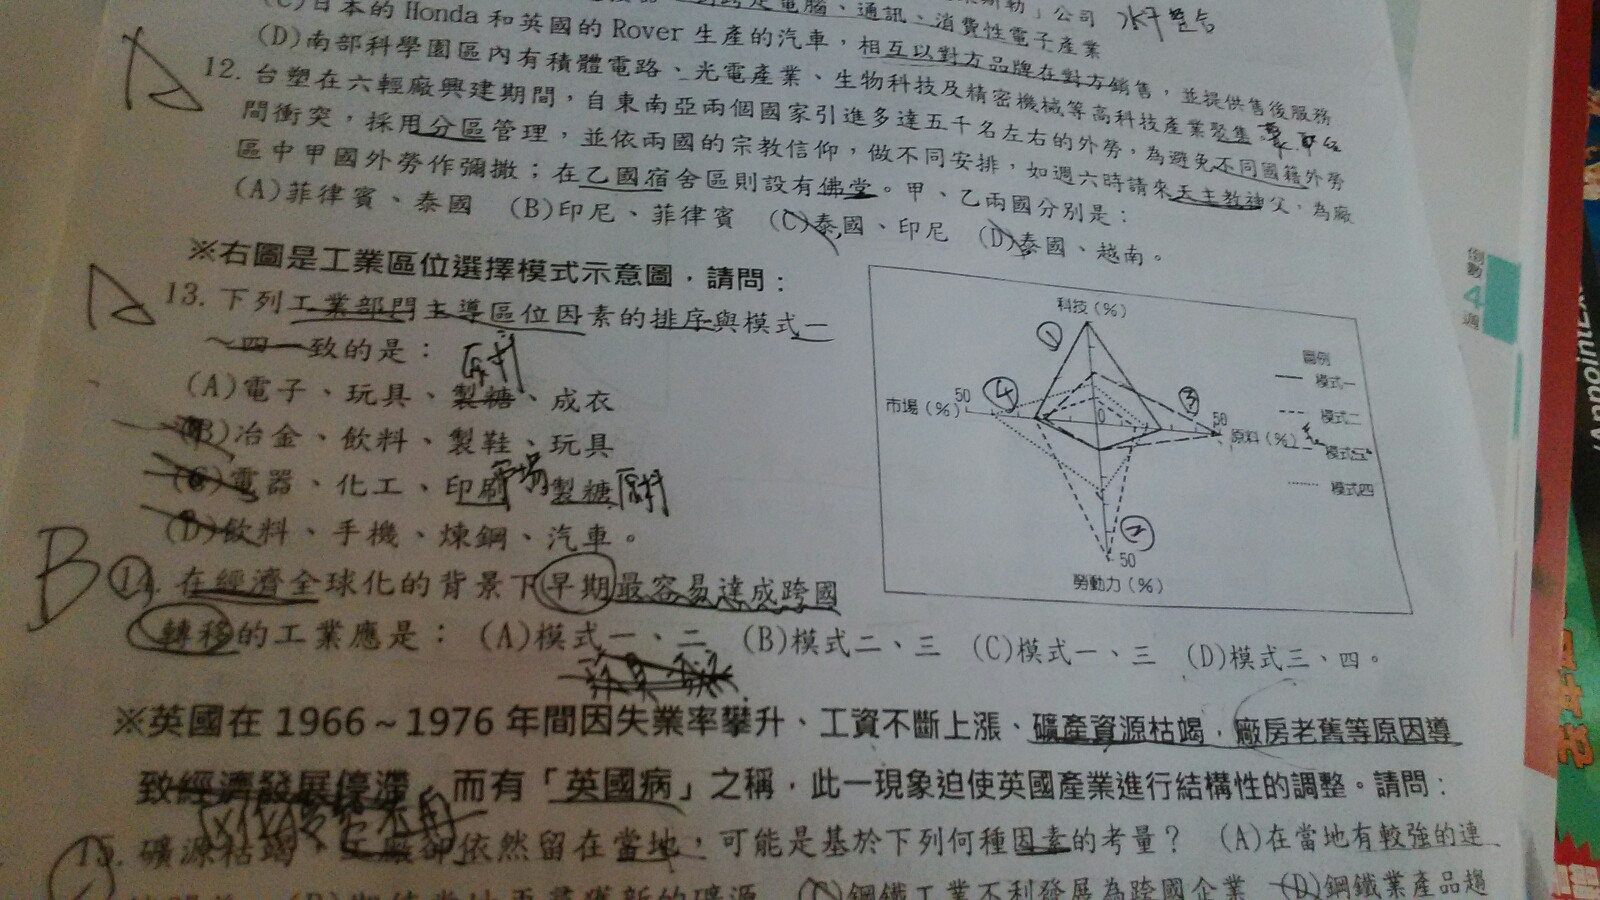 公司 水平整合
(C)日本的 Honda 和英國的 Rover 生產的汽車，相互以對方品牌在對方銷售，並提供售後服務
電腦、通訊、消費性電子產業
(D)南部科學園區內有積體電路、光電產業、生物科技及精密機械等高科技產業聚集
A
12. 台塑在六輕廠興建期間，自東南亞兩個國家引進多達五千名左右的外勞，為避免不同國籍外勞
間衝突，採用分區管理，並依兩國的宗教信仰，做不同安排，如週六時請來天主教神父，為廠
區中甲國外勞作彌撒；在乙國宿舍區則設有佛堂。甲、乙兩國分別是：
(A)菲律賓、泰國 (B)印尼、菲律賓 (C)泰國、印尼 (D)泰國、越南。
※右圖是工業區位選擇模式示意圖，請問：
A
13. 下列工業部門主導區位因素的排序與模式一
～四一致的是：
原料
(A)電子、玩具、製糖、成衣
(B)冶金、飲料、製鞋、玩具
(C)電器、化工、印刷、製糖
市場 原料
(D)飲料、手機、煉鋼、汽車。
科技(%)
① ② ③ ④
市場(%) 50
0
50 原料(%)
50
勞動力(%)
圖例
模式一
模式二
模式三
模式四
B
14. 在經濟全球化的背景下早期最容易達成跨國
轉移的工業應是：(A)模式一、二 (B)模式二、三 (C)模式一、三 (D)模式三、四。
※英國在 1966～1976 年間因失業率攀升、工資不斷上漲、礦產資源枯竭，廠房老舊等原因導
致經濟發展停滯，而有「英國病」之稱，此一現象迫使英國產業進行結構性的調整。請問：
15. 礦源枯竭，工廠卻依然留在當地，可能是基於下列何種因素的考量？ (A)在當地有較強的連
(C)鋼鐵工業不利發展為跨國企業 (D)鋼鐵業產品趨
倒數4週
Appointme